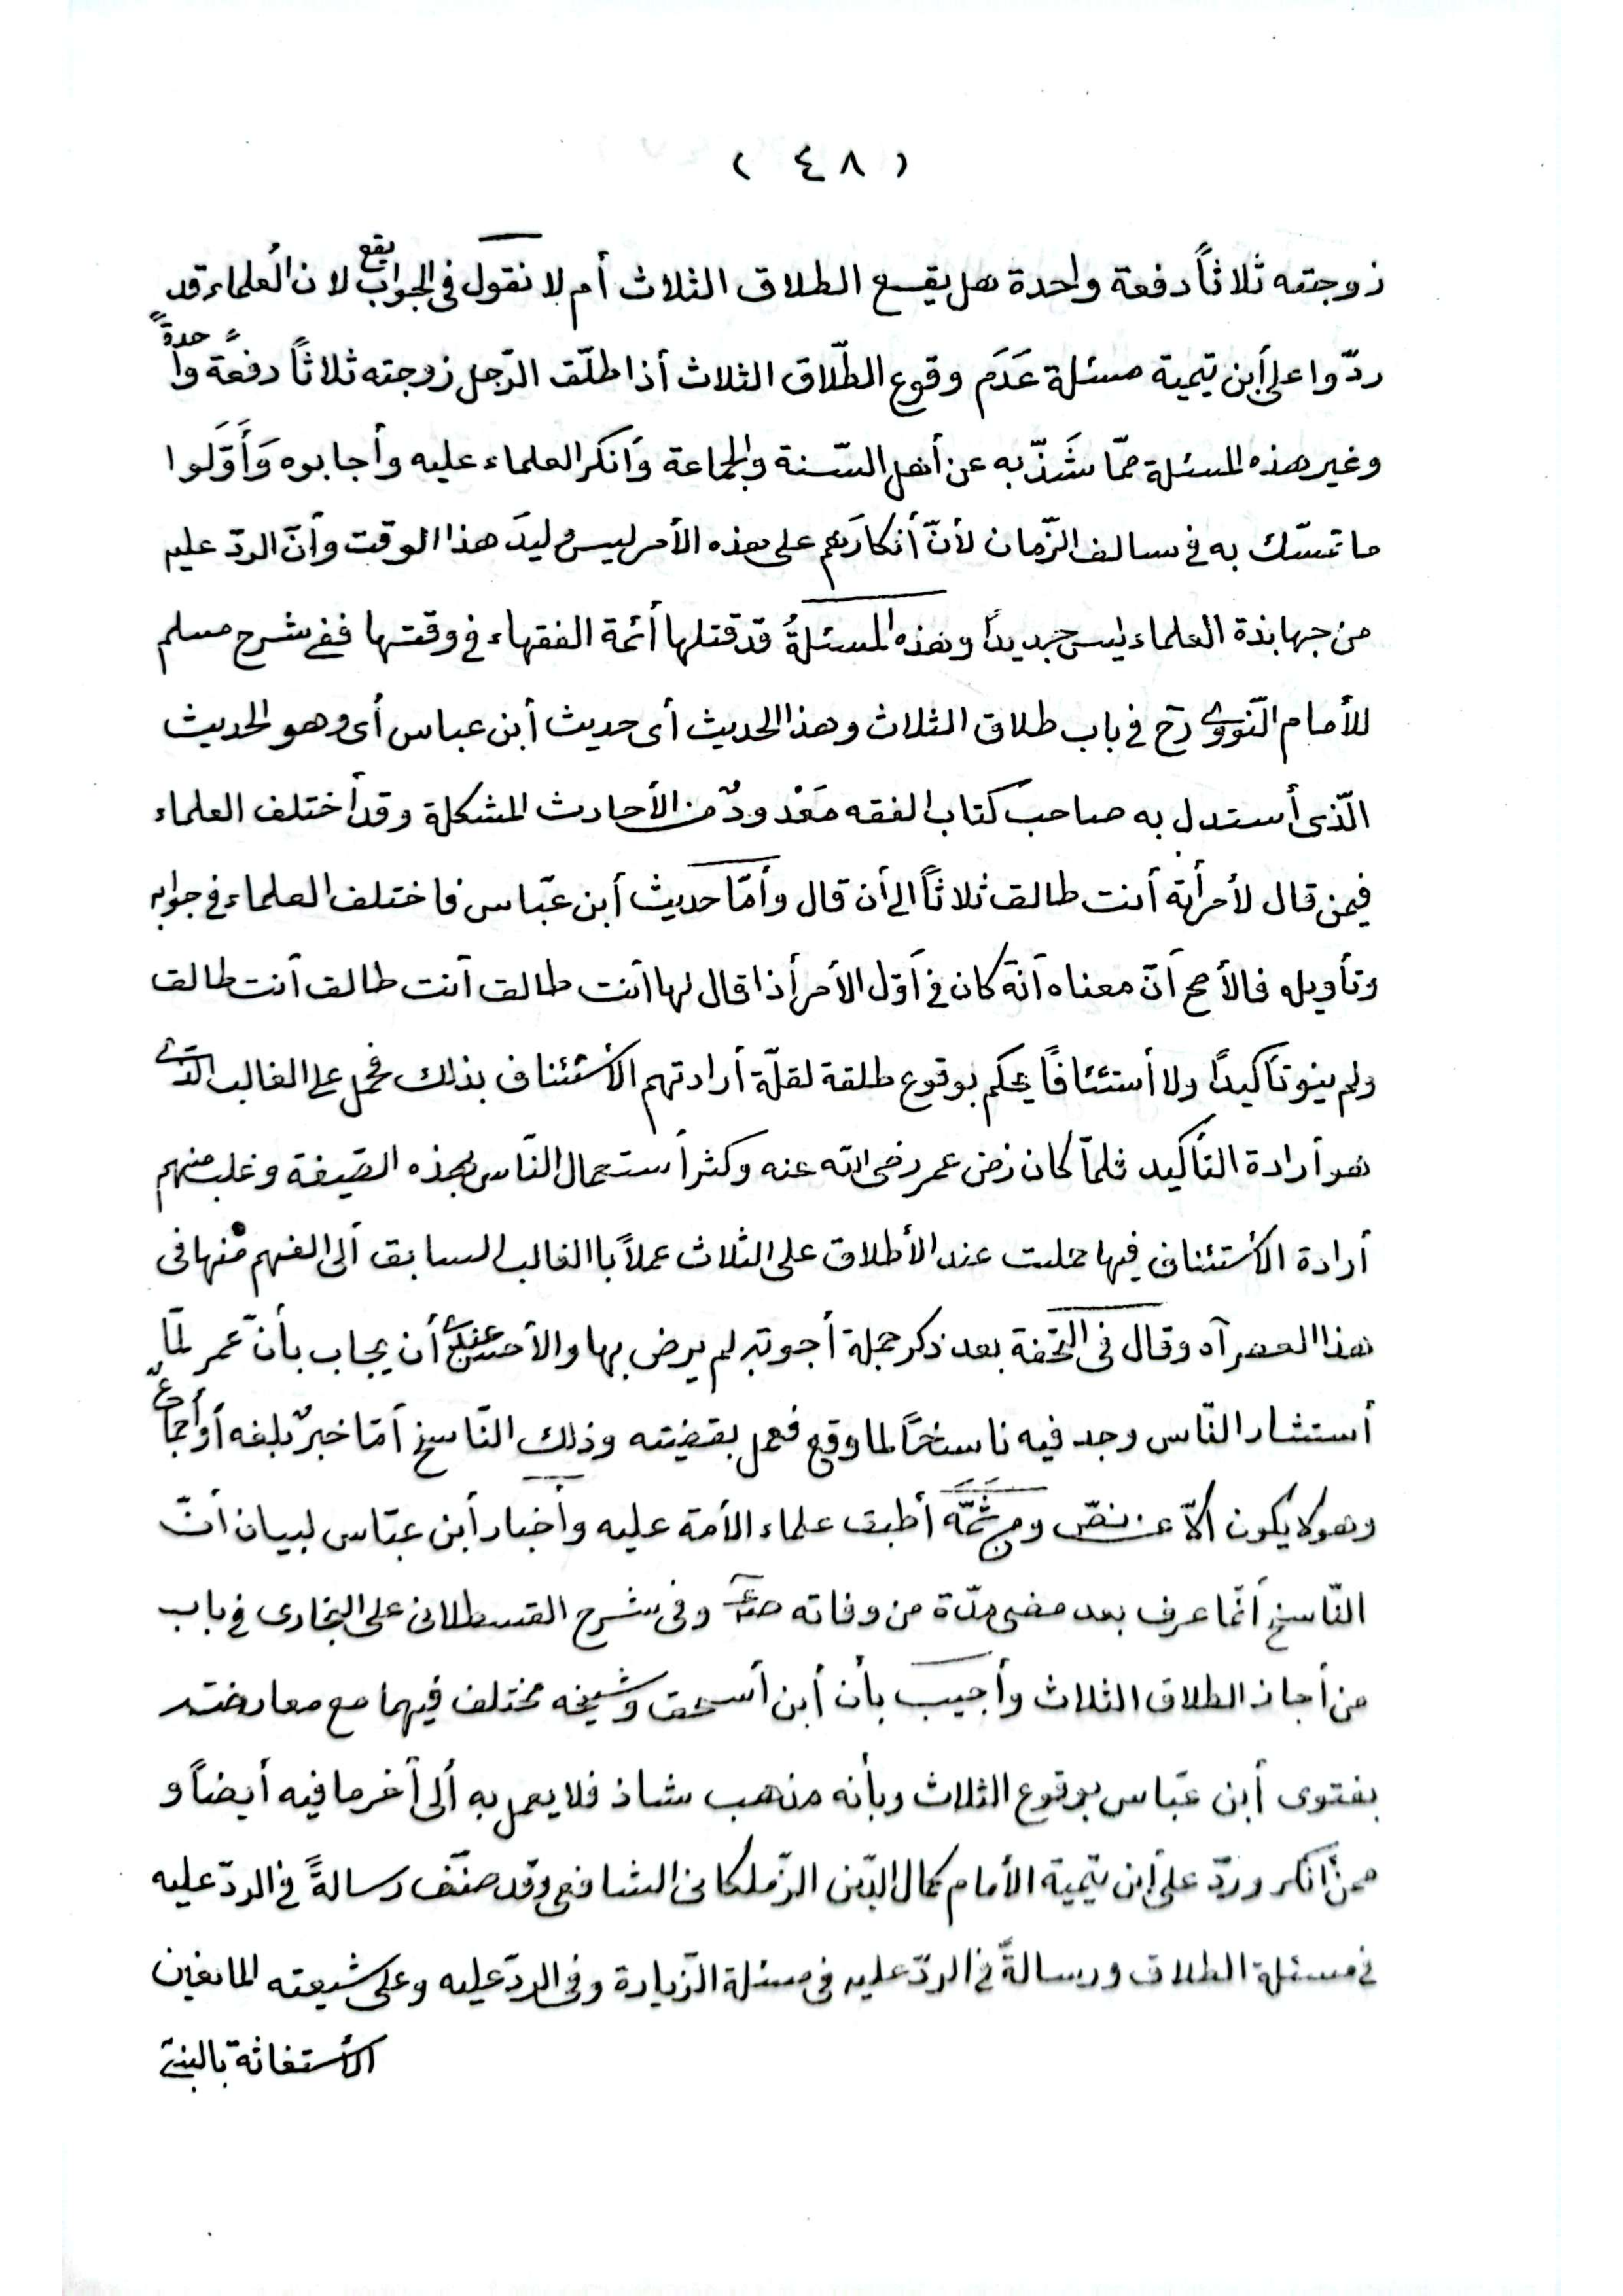 ( ٤٨ )
زوجته ثلاثاً دفعة واحدة هل يقع الطلاق الثلاث أم لا نقول فى الجواب يقع لان العلماء قد
ردّوا على أبن تيمية مسئلة عَدَم وقوع الطّلاق الثلاث أذا طلّق الرّجل زوجته ثلاثاً دفعةً واحدةً
وغير هذه المسئلة ممّا شَذّ به عن أهل السّنة والجماعة وَأنكر العلماء عليه وأجابوه وَأَوَّلوا
ما تمسّك به فى سالف الزّمان لأنّ أنكارَهم على هذه الأمر ليس وليدَ هذا الوقت وأنّ الردّ عليهم
من جهابذة العلماء ليس جديداً وهذه المسئلةُ قد قتلها أئمة الفقهاء فى وقتها ففى شرح مسلم
للأمام النّووى رح فى باب طلاق الثلاث وهذا الحديث أى حديث أبن عباس أى وهو الحديث
الّذى أستدل به صاحب كتاب الفقه مَعْدودٌ من الأحادث المشكلة وقد أختلف العلماء
فيمن قال لأمرأته أنت طالق ثلاثاً الى أن قال وأمّا حديث أبن عبّاس فاختلف العلماء فى جوابه
وتأويله فالأصح أنّ معناه أنّه كان فى أوّل الأمر أذا قال لها أنت طالق أنت طالق أنت طالق
ولم ينو تأكيداً ولا أستئنافاً يحكم بوقوع طلقة لقلّة أرادتهم الأستئناف بذلك فحمل على الغالب الّذى
هو أرادة التأكيد فلمّا كان زمن عمر رضى الله عنه وكثر أستعمال النّاس بهذه الصّيغة وغلب منهم
أرادة الأستئناف فيها حملت عند الأطلاق على الثلاث عملاً باالغالب السابق ألى الفهم منها فى
هذا العصر آه وقال فى التحفة بعد ذكر جملة أجوبة لم يرض بها والأحسن عندى أن يجاب بأنّ عمر لمّا
أستشار النّاس وجد فيه ناسخاً لما وقع فعمل بقضيته وذلك النّاسخ أمّا خبرٌ بلغه أو أجماعٌ
وهو لا يكون ألاّ عن نصّ ومن ثَمَّه أطبق علماء الأمة عليه وأخبار أبن عبّاس لبيان أنّ
النّاسخ أنّما عرف بعد مضى مدّة من وفاته صلعم وفى شرح القسطلانى على البخارى فى باب
من أجاز الطلاق الثلاث وأجيب بأن أبن أسحق وشيخه مختلف فيهما مع معارضته
بفتوى أبن عبّاس بوقوع الثلاث وبأنه مذهب شاذ فلا يعمل به ألى أخر ما فيه أيضاً و
ممن أنكر وردّ على أبن تيمية الأمام كمال الدّين الزّملكانى الشافعى وقد صنّف رسالةً فى الردّ عليه
فى مسئلة الطلاق ورسالةً فى الردّ عليه فى مسئلة الزّيارة وفى الردّ عليه وعلى شيعته المانعين
الأستغاثة بالنبىّ